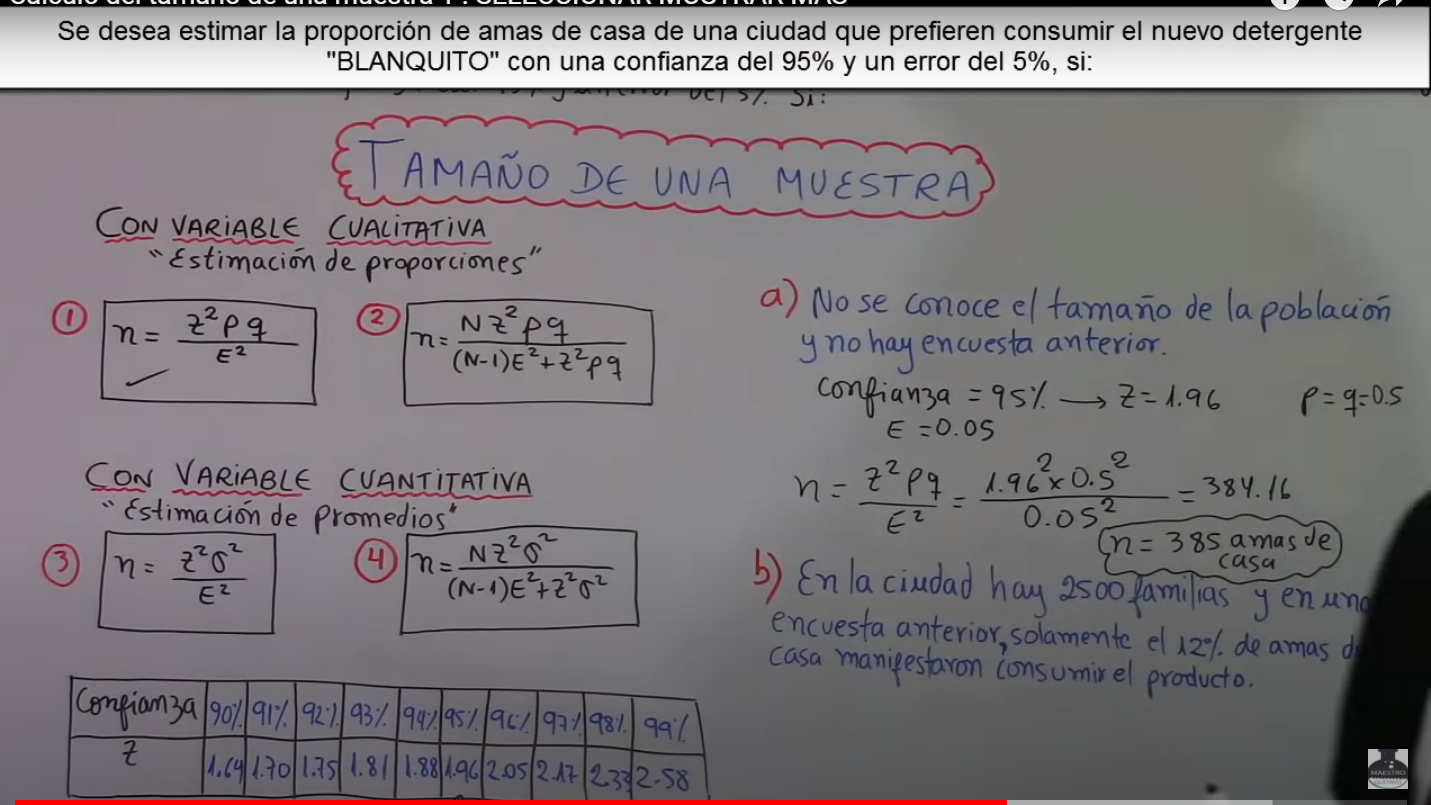 Se desea estimar la proporción de amas de casa de una ciudad que prefieren consumir el nuevo detergente
"BLANQUITO" con una confianza del 95% y un error del 5%, si:
TAMAÑO DE UNA MUESTRA
CON VARIABLE CUALITATIVA
"Estimación de proporciones"
1 n = Z²pq / E²
2 n = NZ²pq / (N-1)E²+Z²pq
CON VARIABLE CUANTITATIVA
"Estimación de promedios"
3 n = Z²σ² / E²
4 n = NZ²σ² / (N-1)E²+Z²σ²
Confianza 90% 91% 92% 93% 94% 95% 96% 97% 98% 99%
Z 1.64 1.70 1.75 1.81 1.88 1.96 2.05 2.17 2.33 2.58
a) No se conoce el tamaño de la población
y no hay encuesta anterior.
Confianza = 95% → Z = 1.96 p = q = 0.5
E = 0.05
n = Z²pq / E² = 1.96² x 0.5² / 0.05² = 384.16
n = 385 amas de
casa
b) En la ciudad hay 2500 familias y en una
encuesta anterior, solamente el 12% de amas d
casa manifestaron consumir el producto.
MAESTRO